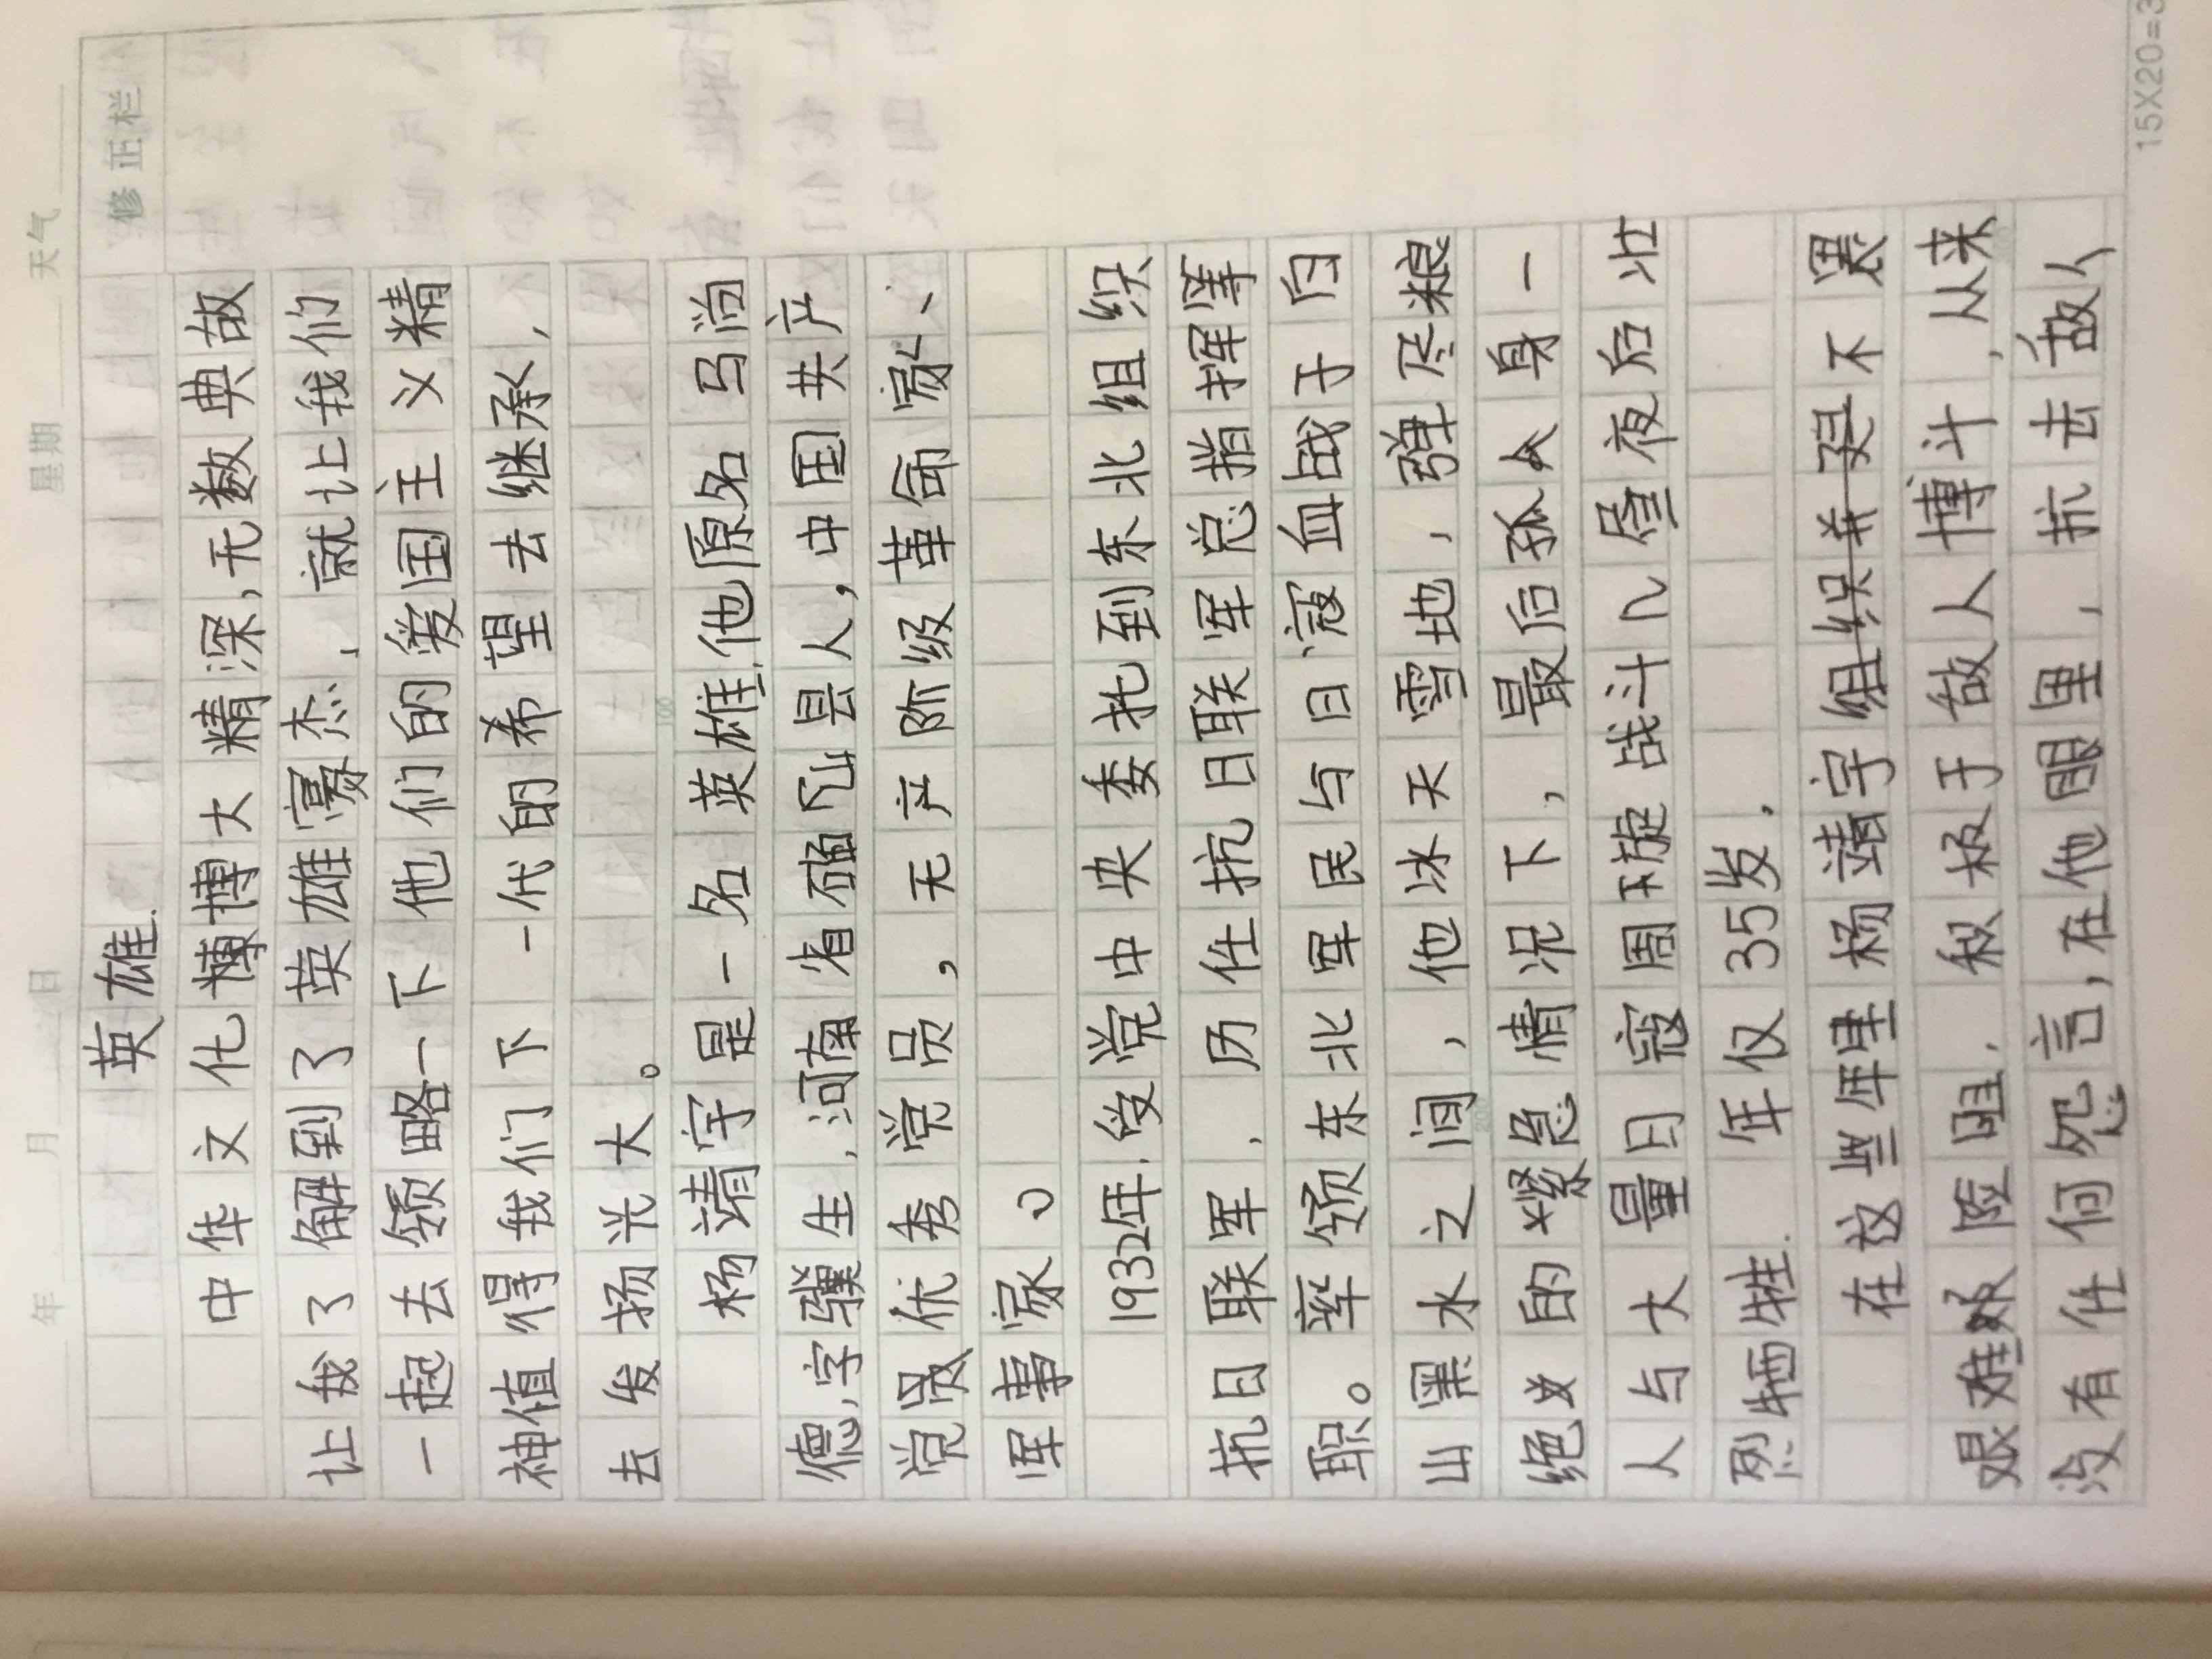 年 月 日 星期 天气
修正栏
英雄.
中华文化博大精深,无数典故
让我了解到了英雄豪杰,就让我们
一起去领略一下他们的爱国主义精
神值得我们下一代的希望去继承,
去发扬光大。
杨靖宇是一名英雄.他原名马尚
德,字骥生,河南省确山县人,中国共产
党员优秀党员,无产阶级革命家、
军事家。
1932年,受党中央委托到东北组织
抗日联军,历任抗日联军总指挥等
职。率领东北军民与日寇血战于白
山黑水之间,他冰天雪地,弹尽粮
绝的紧急情况下,最后孤身一
人与大量日寇周旋战斗几昼夜后壮
烈牺牲.年仅35岁.
在这些年里杨靖宇不畏
艰难险阻,积极于敌人搏斗,从来
没有任何怨言,在他眼里,抗击敌人
15X20=3